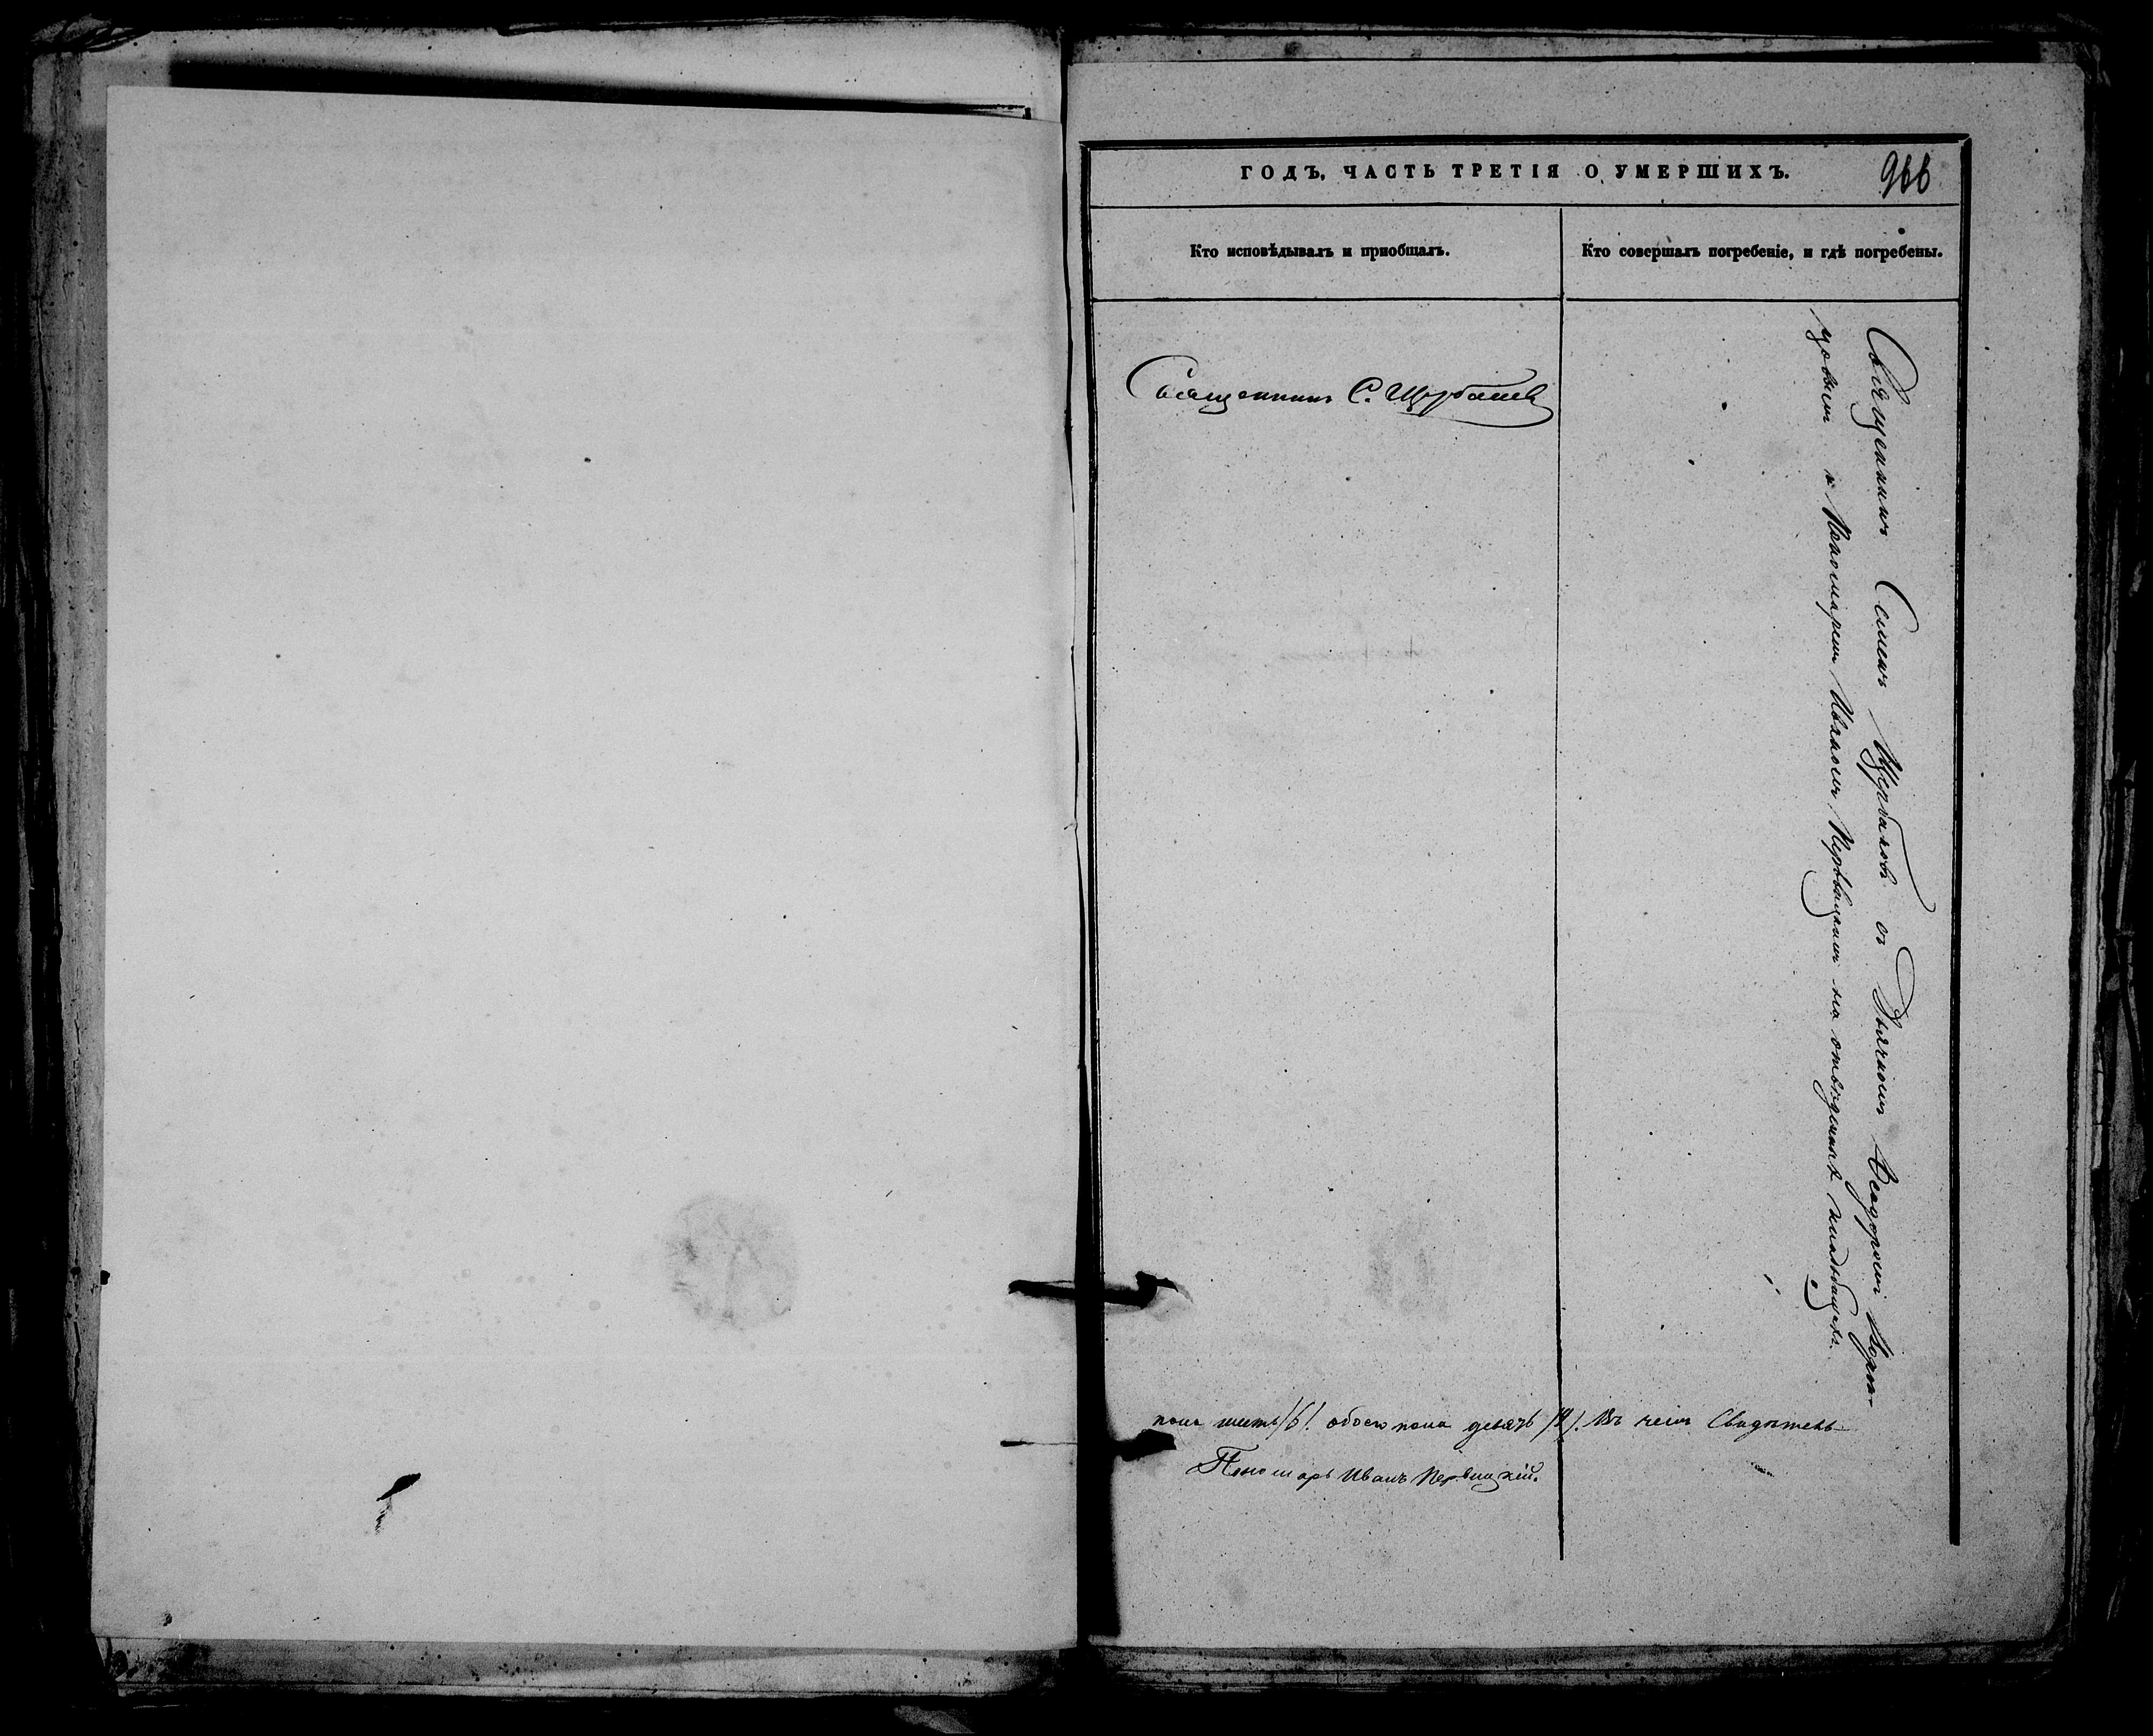 ГОДЪ, ЧАСТЬ ТРЕТІЯ О УМЕРШИХЪ.
966
Кто исповѣдывалъ и пріобщалъ.
Кто совершалъ погребеніе, и гдѣ погребены.
Священникъ С. Щербаневъ
Священникъ Сѵмеонъ с Дьячкомъ Ѳеодоромъ
и Пономаремъ Иваномъ Первицкимъ на отведенныхъ кладбищахъ.
пола шесть /6/. обоего пола девять /9/. Въ чемъ Свидѣтель-
Пономарь Иванъ Первицкій.